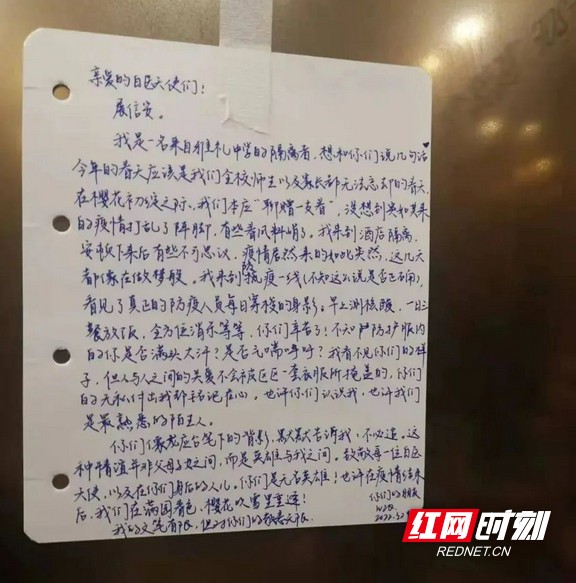 亲爱的白区天使们：
展信安。
我是一名来自雅礼中学的隔离者，想和你们说几句话
今年的春天应该是我们全校师生以及家长都无法忘却的春天，
在樱花初绽之际，我们本应"聊赠一支春"，没想到突如其来
的疫情打乱了阵脚，有些春风料峭了。我来到酒店隔离，
安顿下来后有些不可思议，疫情居然来的如此突然，这几天
都像在做梦般。我来到抗疫一线(不知这么说是否正确)，
看见了真正的防疫人员每日穿梭的身影。早上测核酸，一日三
餐放饭，全方位消杀等等，你们辛苦了！不知严防护服内
的你是否满头大汗？是否气喘呼呼？我看不见你们的样
子，但人与人之间的关爱不会被区区一套衣服所掩盖的，你们
的无私付出我都铭记在心。也许你们认识我，也许我们
是最熟悉的陌生人。
你们像龙应台笔下的背影，默默告诉我，不必追。这
种情谊并非父母子女之间，而是英雄与我之间。致敬每一位白区
天使，以及在你们身后的人儿，你们是无名英雄！也许在疫情结束
后，我们在满园春色，樱花吹雪里重逢！
我的文笔有限，但对你们的敬意无限。
你们的朋友
2022.3.2
红网时刻
REDNET.CN